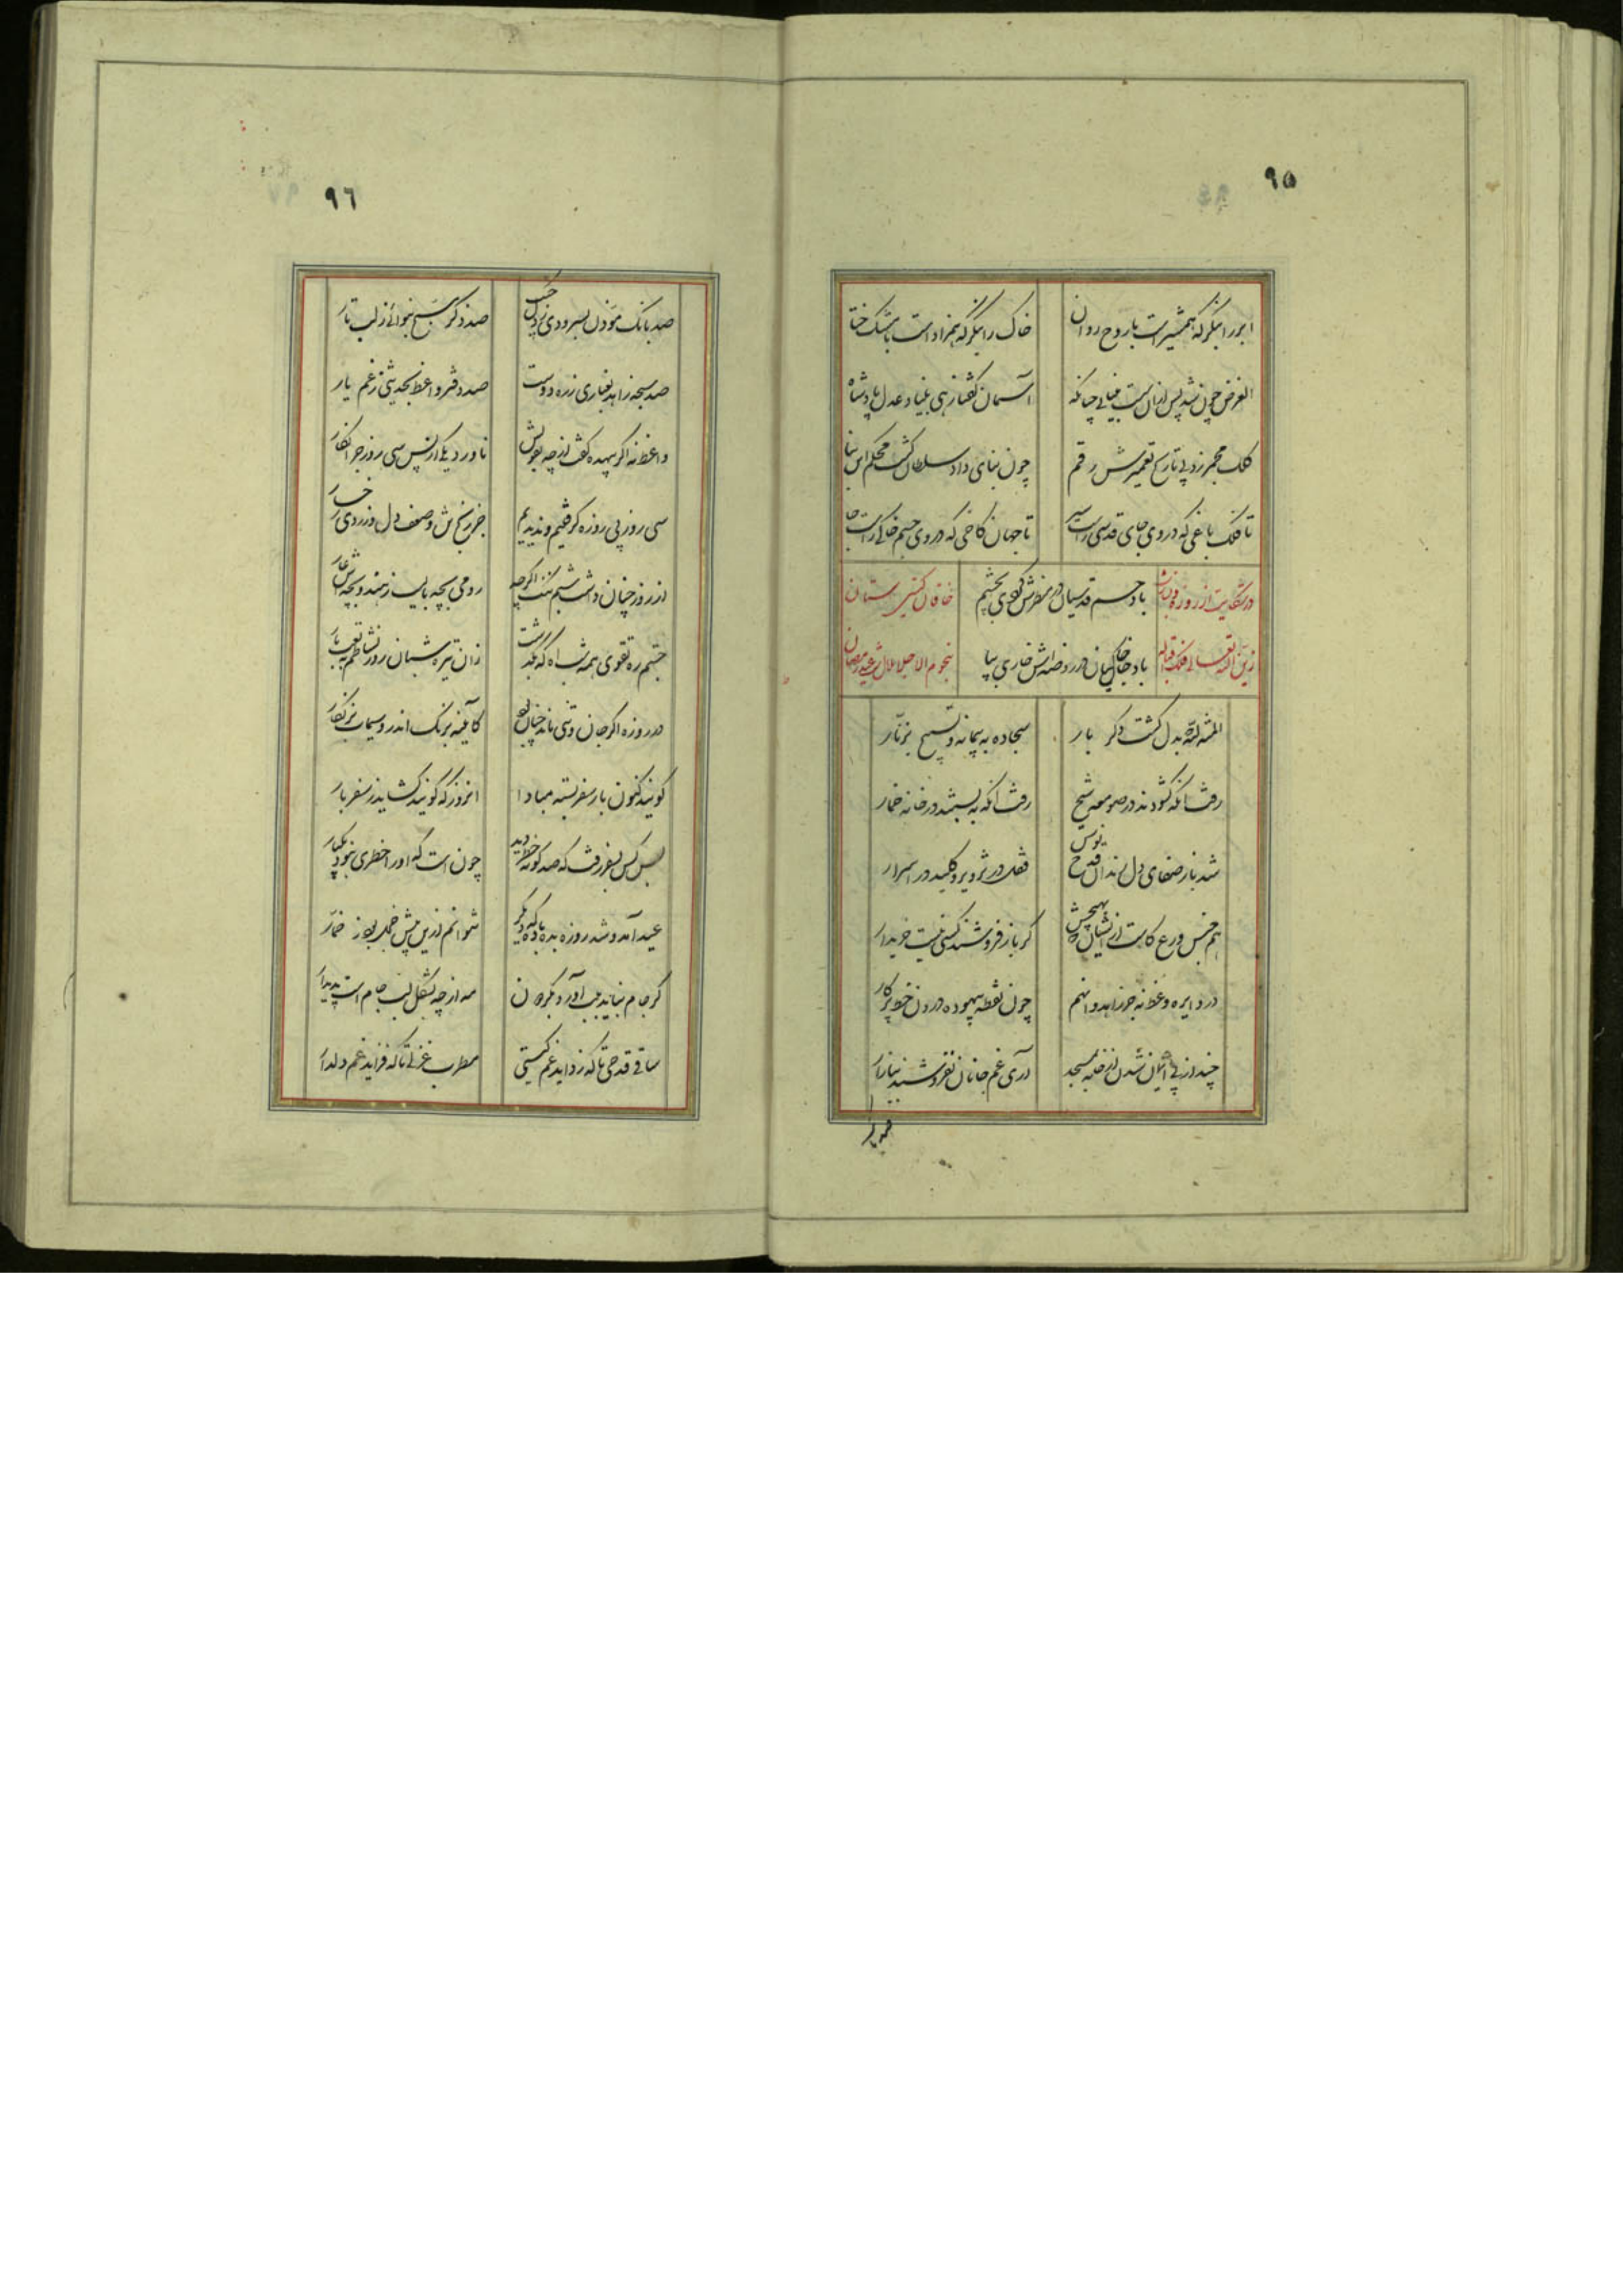 ٩٥
ابر را بنگر که همشیر است با روح روان
خاک را بنگر که همزاد است با مشک ختا
الغرض چون شد پس از آن سبت مبانی چنانکه
آسمان گفتا زهی بنیاد عدل پادشاه
کلک مجمر زد پی تاریخ تعمیرش رقم
چون بنای داد سلطان گشت محکم این بنا
تا فلک باغی که در وی جای قدسی راست سیر
تا جهان کاخی که در وی جسم خاکی راست جا
در شکایت از روز
باد جسم قدسیان در منظرش گوی بچشم
خاقان کشورستان
باد جان خاکیان در روضه‌اش خاری بپا
المنة لله بدل گشت دگر بار
سجاده به پیمانه و تسبیح بزنار
رفت آنکه گشودند در صومعه شیخ
رفت آنکه ببستند در خانه خمار
شد باز صفای دل رندان قدح نوش
قفل در تزویر و کلید در اسرار
هم جنس ورع کاست از ایشان که بهیچش
گر باز فروشند کسی نیست خریدار
در دایره وعظ نه جز زاهد و آنهم
چون نقطه بیهوده درون خط پرکار
چند از پی ایمان شدن از خانه بمسجد
آری غم جانان نفروشند ببازار
صد ذکر
٩٦
صد بانک مؤذن بسرودی ز دل چنگ
صد ذکر مسبح بنوائی ز لب تار
صد سبحه زاهد بغباری ز ره دوست
صد دفتر واعظ بحدیثی ز غم یار
واعظ نه اگر بیهده گفت از چه بقولش
ناورد یکی از پس سی روز جز انکار
سی روز پی روزه گرفتیم و ندیدیم
جز رنج تن و ضعف دل و زردی رخسار
از روز چنان دشت شبم تنک اگر چه
رومی بچه باید ز هند و بچه‌اش عار
چشمم ره تقوی همه شب داد که بگذشت
زان تیره شبان روز نشاطم بتعب یار
در روزه اگر جان و تنی ماند چنان بود
کآئینه برنک اندر و سیماب بزنگار
گویند کنون بار سفر بسته مبادا
امروز که گویند گشاید ز سفر بار
بس کس بسفر رفت که صد گونه خطر دید
چون است که او را خطری نبود یکبار
عید آمد و شد روزه بده باده که دیگر
نتوانم ازین بیش خجل بود ز خمار
گر جام نباید بلب آورد بگردان
مه از چه بشکل لب جام است پدیدار
ساقی قدحی تا که زداید غم گیتی
مطرب غزلی تا که فزاید غم دلدار